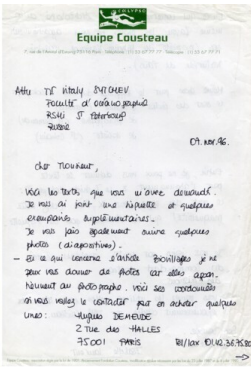 CALYPSO
Equipe Cousteau
Attn Dr Vitaly SYTCHEV
Faculté d'océanographie
RSHI ST Petersbourg
Russie
07. nov. 96.
Cher Monsieur,
Voici les textes que vous m'avez demandé.
Je vous ai joint une maquette et quelques
exemplaires supplémentaires.
Je vous fais également suivre quelques
photos (diapositives).
- En ce qui concerne l'article je ne
peux vous donner de photos car elles appar-
tiennent au photographe. Voici ses coordonnées
si vous voulez le contacter pour en acheter quelques
unes : Hugues DEMEUDE
2 rue des HALLES
75001 PARIS